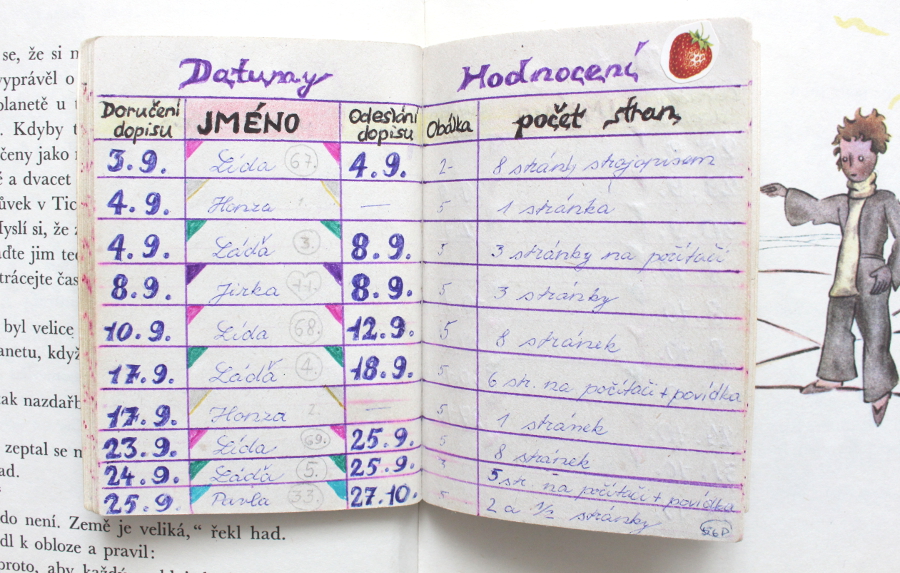 se, že si
vyprávěl o
planetě u
. Kdyby
čeny jako
é a dvacet
ůvek v Tic
Myslí si, že
aďte jim
trácejte čas
byl velice
anetu, když
tak nazdařb
zeptal se
ad.
do není. Země je veliká,“ řekl had.
dl k obloze a pravil:
proto, aby
Datumy
Doručení dopisu JMÉNO Odeslání dopisu
3.9. Lída 67. 4.9.
4.9. Honza —
4.9. Láďa 3. 8.9.
8.9. Jirka 8.9.
10.9. Lída 68. 12.9.
17.9. Láďa 4. 18.9.
17.9. Honza 2. —
23.9. Lída 69. 25.9.
24.9. Láďa 5. 25.9.
25.9. Pavla 33. 27.10.
Hodnocení
Obálka počet stran
2- 8 stránk strojopisem
5 1 stránka
5 3 stránky na počítači
5 3 stránky
5 8 stránek
5 6 str. na počítači + povídka
5 1 stránek
5 8 stránek
3 5 str. na počítači + povídka
5 2 a 1/2 stránky